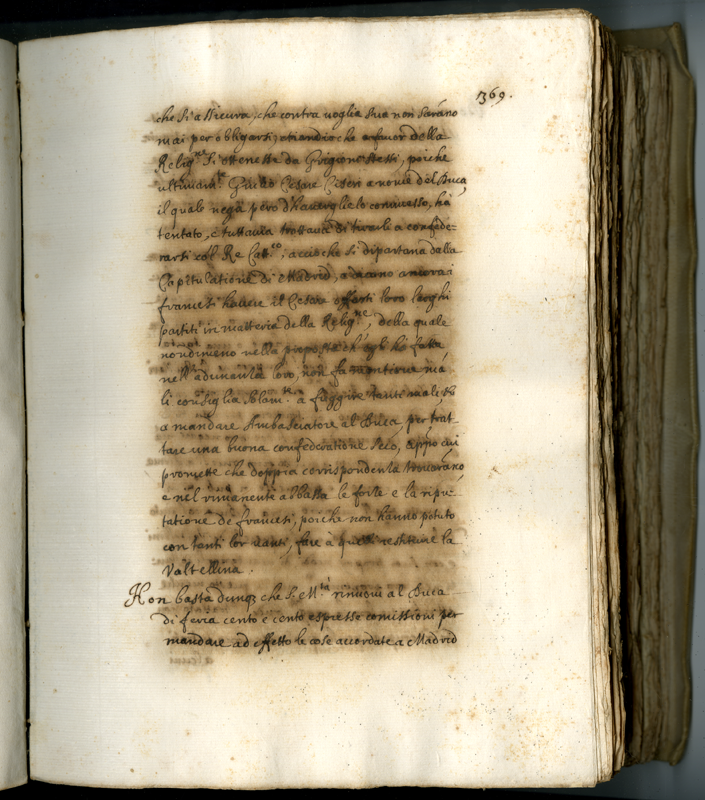 1369.
che si assicura, che contra voglia sua non sarano
mai per obbligarsi, etiandio che a favor della
Relig.ne si ottenesse da Grigioni stessi, poiche
ultimam.te Giulio Cesare Ciseri a nome del Duca,
il quale nega però d'haverglielo comesso, hà
tentato, e tuttavia trattava di tirarli a confede-
rarsi col Re Catt.co, acciò che si dipartano dalla
Capitulatione di Madrid, a danno ancora
francesi havere il Cesare offerti loro larghi
partiti in matteria della Relig.ne, della quale
nondimeno nella proposta ch'egli hà fatta
nell'adunanza loro, non fa mentione ma
li consiglia solam.te a fuggire tanti mali, et
a mandare Ambasciatore al Duca, per trat-
tare una buona confederatione seco, appo cui
promette che doppia corrispondenza trovarano,
e nel rimanente abbassa le forze e la ripu-
tatione de francesi, poiche non hanno potuto
con tanti lor vanti, fare à questi restituire la
Valtellina.
Non basta dunq; che S. M.tà rinuovi al Duca
di feria cento e cento espresse comissioni per
mandare ad effetto le cose accordate a Madrid